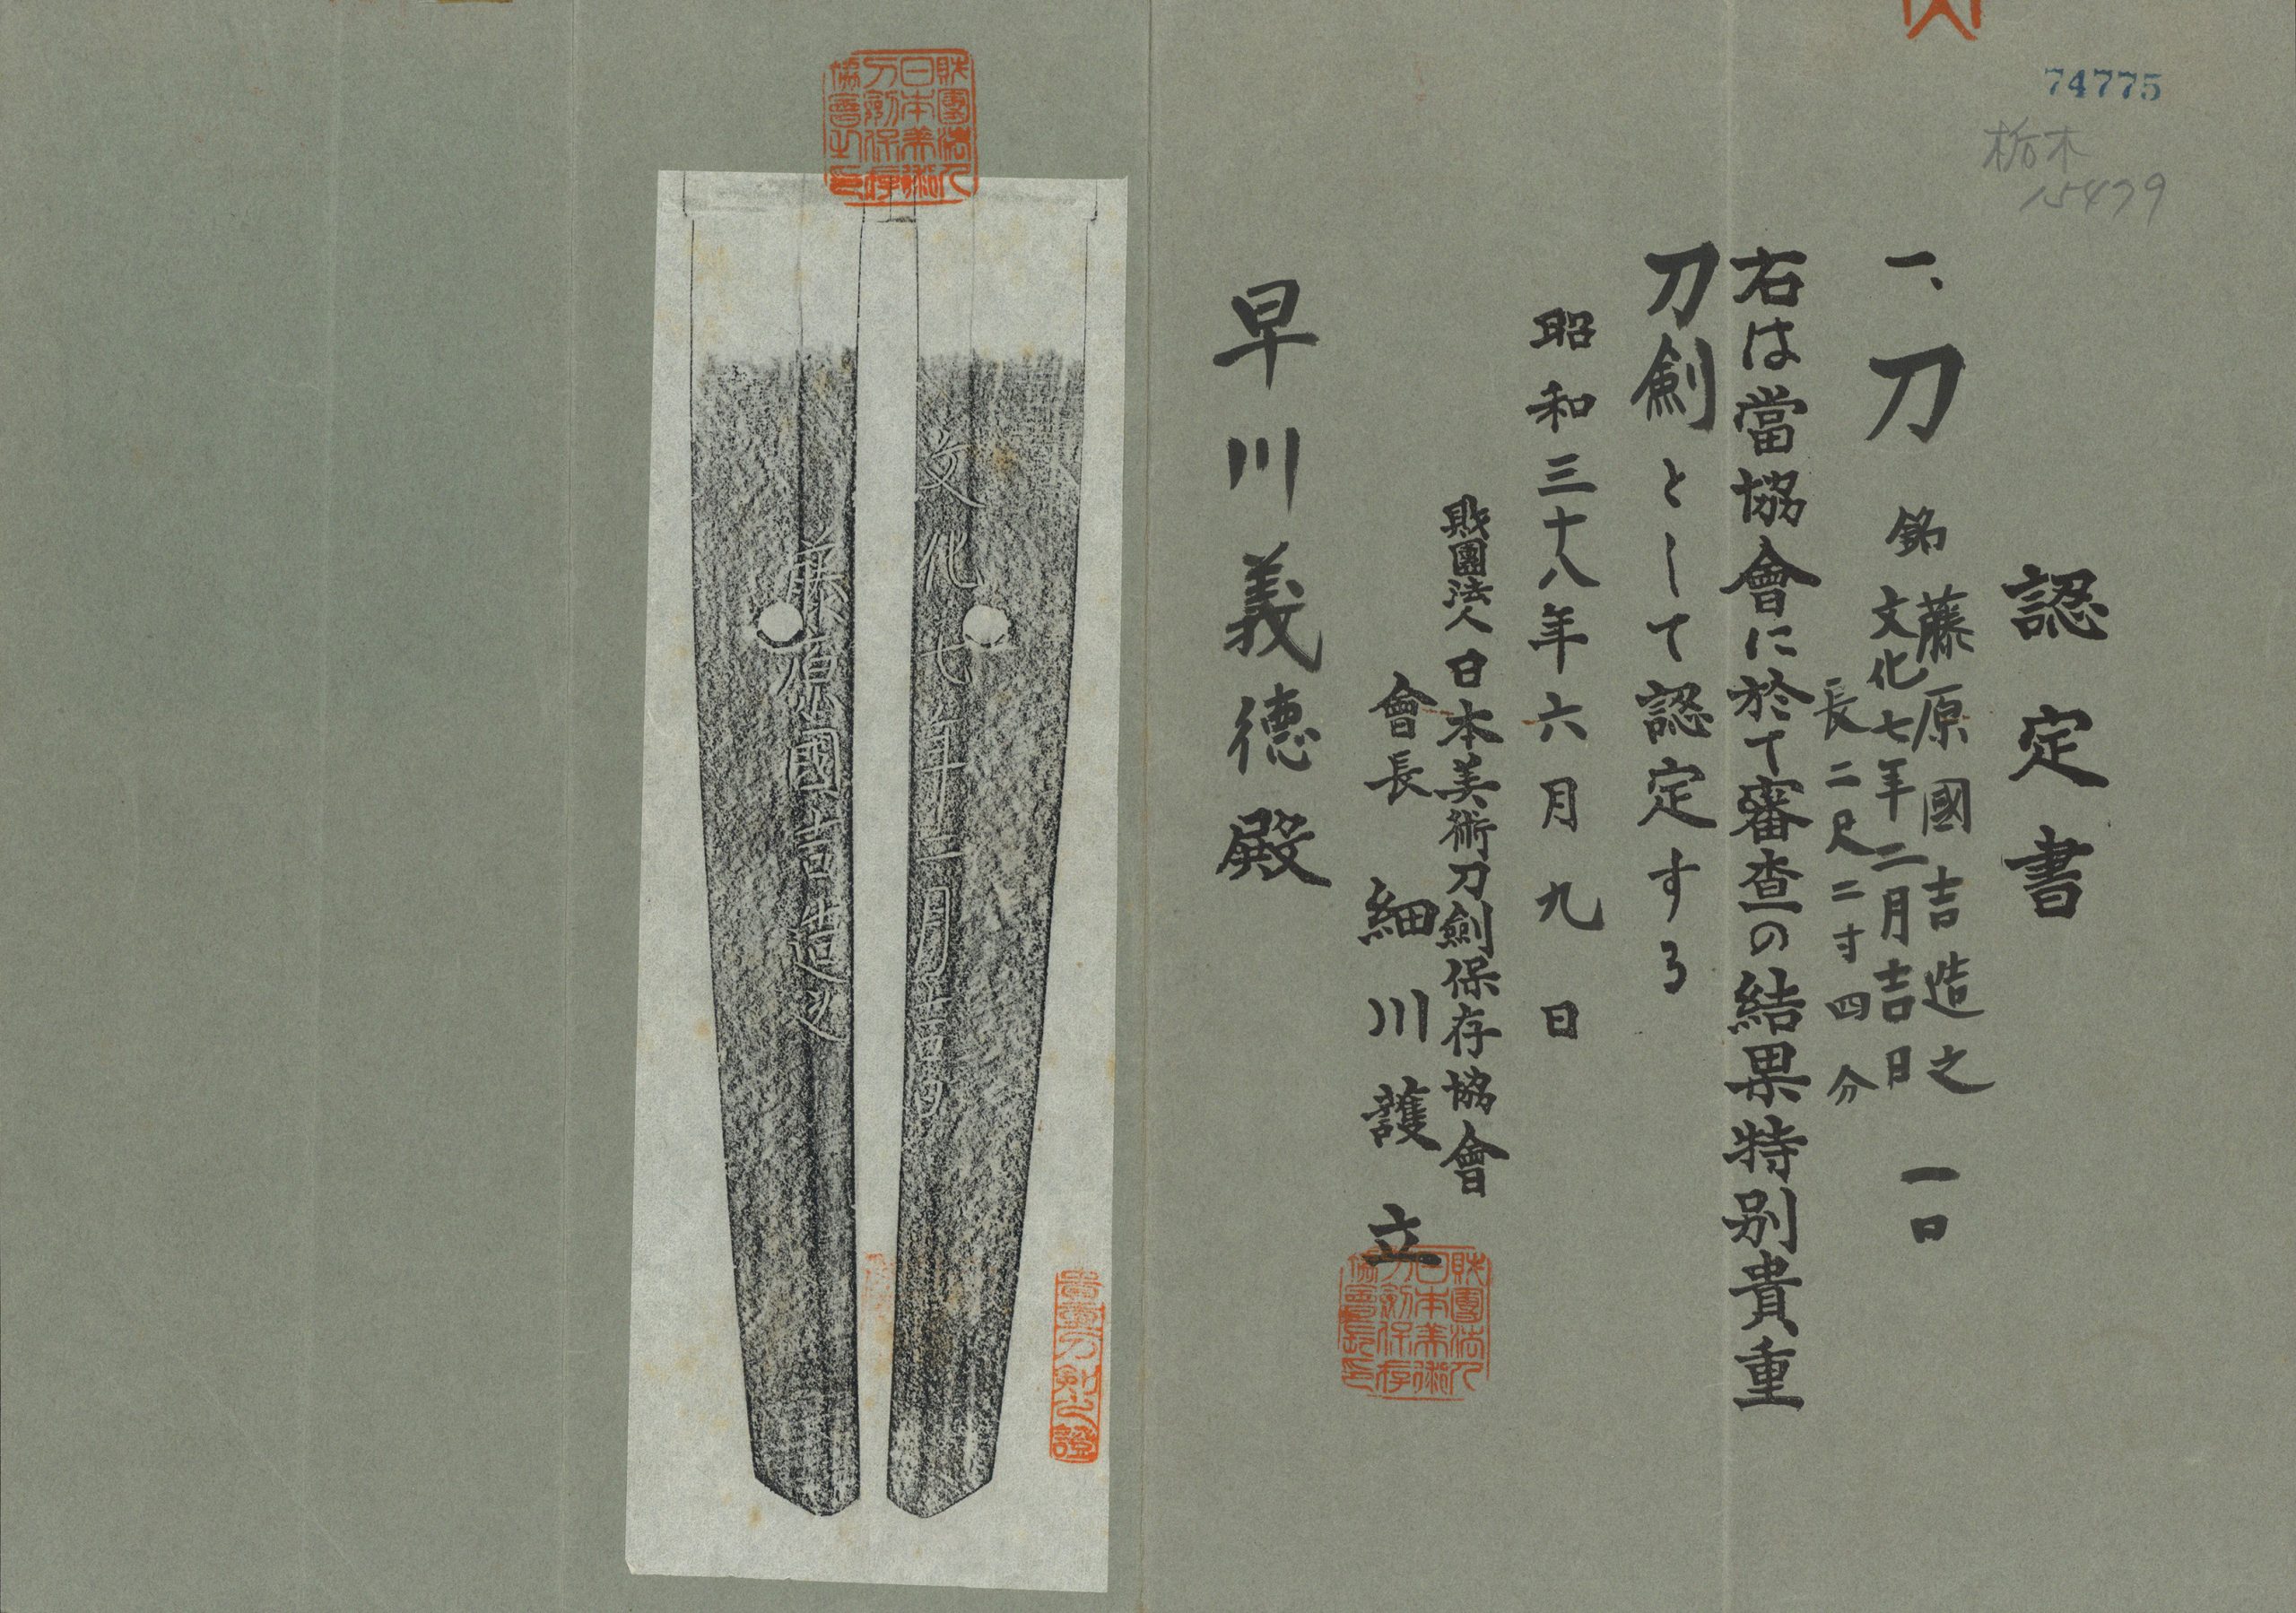 74775
栃木
15479
認定書
一、刀 銘 藤原國吉造之 一口
文化七年二月吉日
長二尺二寸四分
右は當協會に於て審査の結果特別貴重
刀劍として認定する
昭和三十八年六月九日
財團法人日本美術刀劍保存協會
會長 細川護立
財團法人日本美術刀劍保存協會長印
早川義德殿
財團法人日本美術刀劍保存協會之印
文化七年二月吉日
藤原國吉造之
貴重刀剣之證